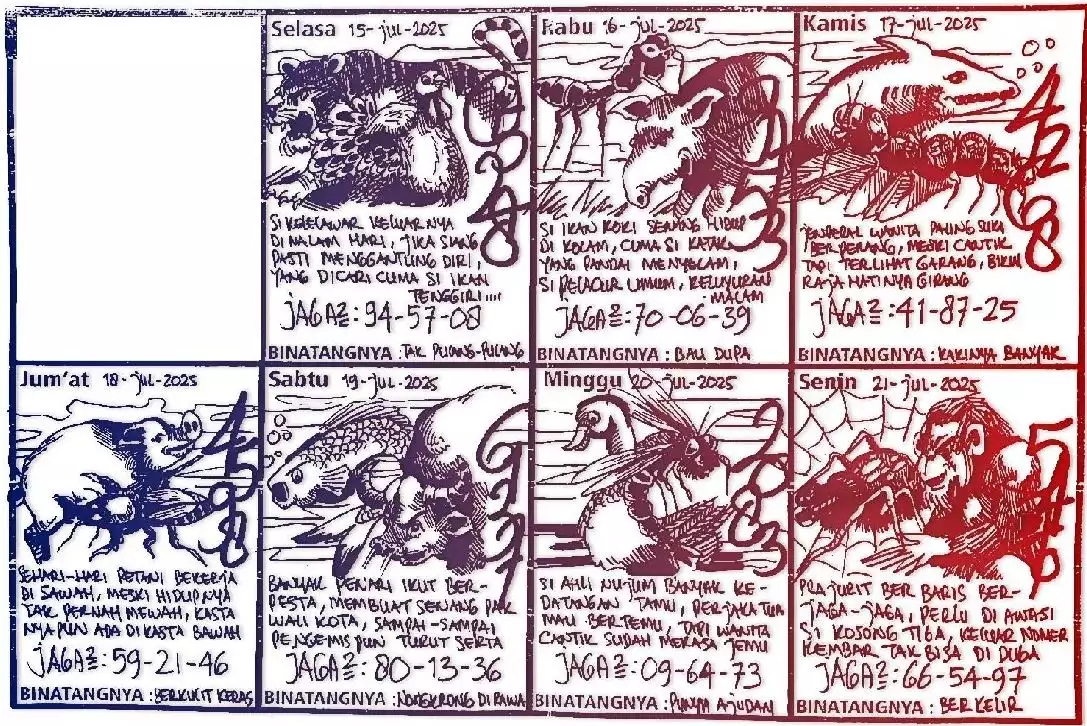 Selasa 15-jul-2025
SI KELELAWAR KELUARNYA
DI MALAM HARI, JIKA SIANG
PASTI MENGGANTUNG DIRI,
YANG DICARI CUMA SI IKAN
TENGGIRI....
JAGA²=:94-57-08
BINATANGNYA : TAK PULANG-PULANG
Rabu 16-jul-2025
SI IKAN KOKI SENANG HIDUP
DI KOLAM, CUMA SI KATAK
YANG PANDAI MENYELAM,
SI PELACUR UMUM, KELUYURAN
MALAM
JAGA²=:70-06-39
BINATANGNYA : BAU DUPA
Kamis 17-jul-2025
4
2
6
8
JENDERAL WANITA PALING SUKA
BERPERANG, MESKI CANTIK
TAPI TERLIHAT GARANG, BIKIN
RAJA HATINYA GIRANG
JAGA²=:41-87-25
BINATANGNYA : KAKINYA BANYAK
Jum'at 18-jul-2025
4
5
9
8
SEHARI-HARI PETANI BEKERJA
DI SAWAH, MESKI HIDUPNYA
TAK PERNAH MEWAH, KASTA
NYA PUN ADA DI KASTA BAWAH
JAGA²=:59-21-46
BINATANGNYA : BERKULIT KERAS
Sabtu 19-jul-2025
BANYAK PENARI IKUT BER-
PESTA, MEMBUAT SENANG PAK
WALI KOTA, SAMPAI-SAMPAI
PENGEMIS PUN TURUT SERTA
JAGA²=:80-13-36
BINATANGNYA : NONGKRONG DI RAWA
Minggu 20-jul-2025
SI AHLI NUJUM BANYAK KE-
DATANGAN TAMU, PERJAKA TUA
MAU BERTEMU, TAPI WANITA
CANTIK SUDAH MERASA JEMU
JAGA²=:09-64-73
BINATANGNYA : PUNYA AJUDAN
Senin 21-jul-2025
PRAJURIT BER BARIS BER-
JAGA-JAGA, PERLU DI AWASI
SI KOSONG TIGA, KELUAR NOMER
KEMBAR TAK BISA DI DUGA
JAGA²=:66-54-97
BINATANGNYA : BERKELIR